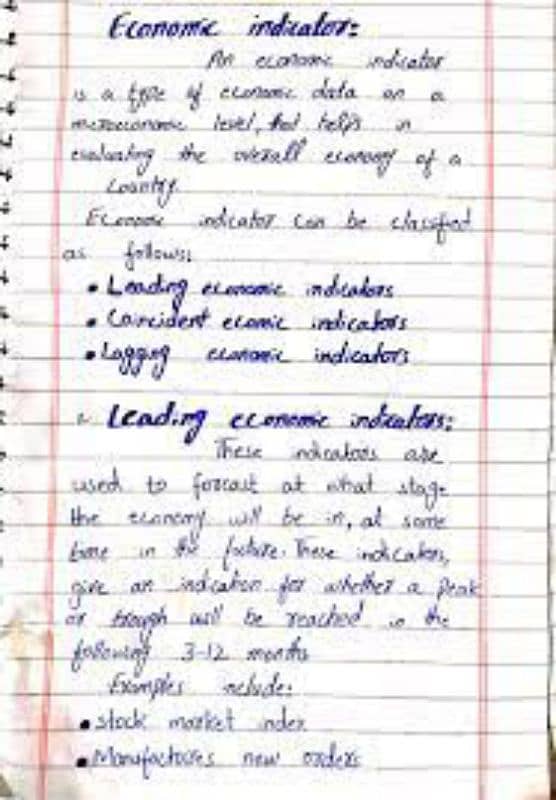 Economic indicators:
An economic indicator
is a type of economic data on a
microeconomic level, that helps in
evaluating the overall economy of a
country
Economic indicator can be classified
as follows:
• Leading economic indicators
• Coincident ecomic indicators
• Lagging economic indicators
Leading economic indicators:
These indicators are
used to forcast at what stage
the economy will be in, at some
time in the future. These indicators,
give an indication for whether a peak
or trough will be reached in the
following 3-12 months
Examples include:
• stock market index
• Manufactures new orders